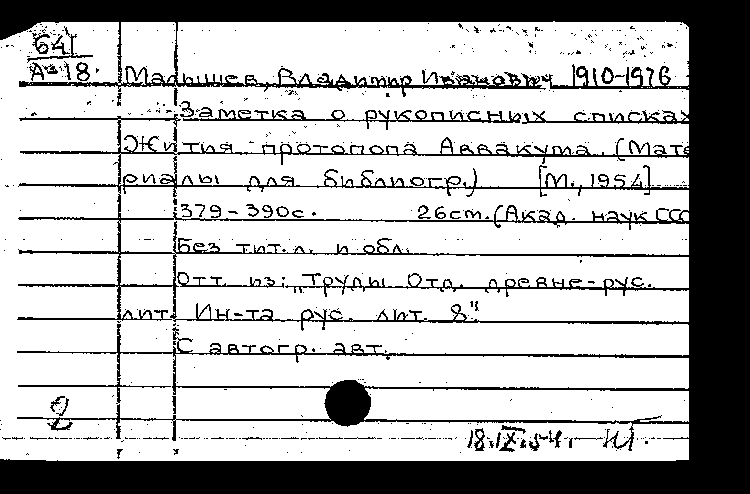 641
А-18.
Малышев, Владимир Иванович 1910-1976
Заметка о рукописных списках
Жития протопопа Аввакума. (Мате
риалы для библиогр.) [М., 1954]
379-390с. 26см. (Акад. наук ССС
Без тит.л. и обл.
Отт. из: „Труды Отд. древне-рус.
лит. Ин-та рус. лит. 8"
С автогр. авт.
2
18.IX.54.